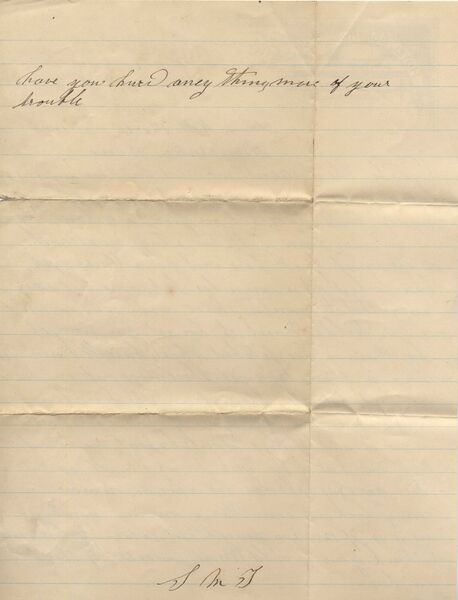 have you hurd aney thing more of your
trouble
S M T